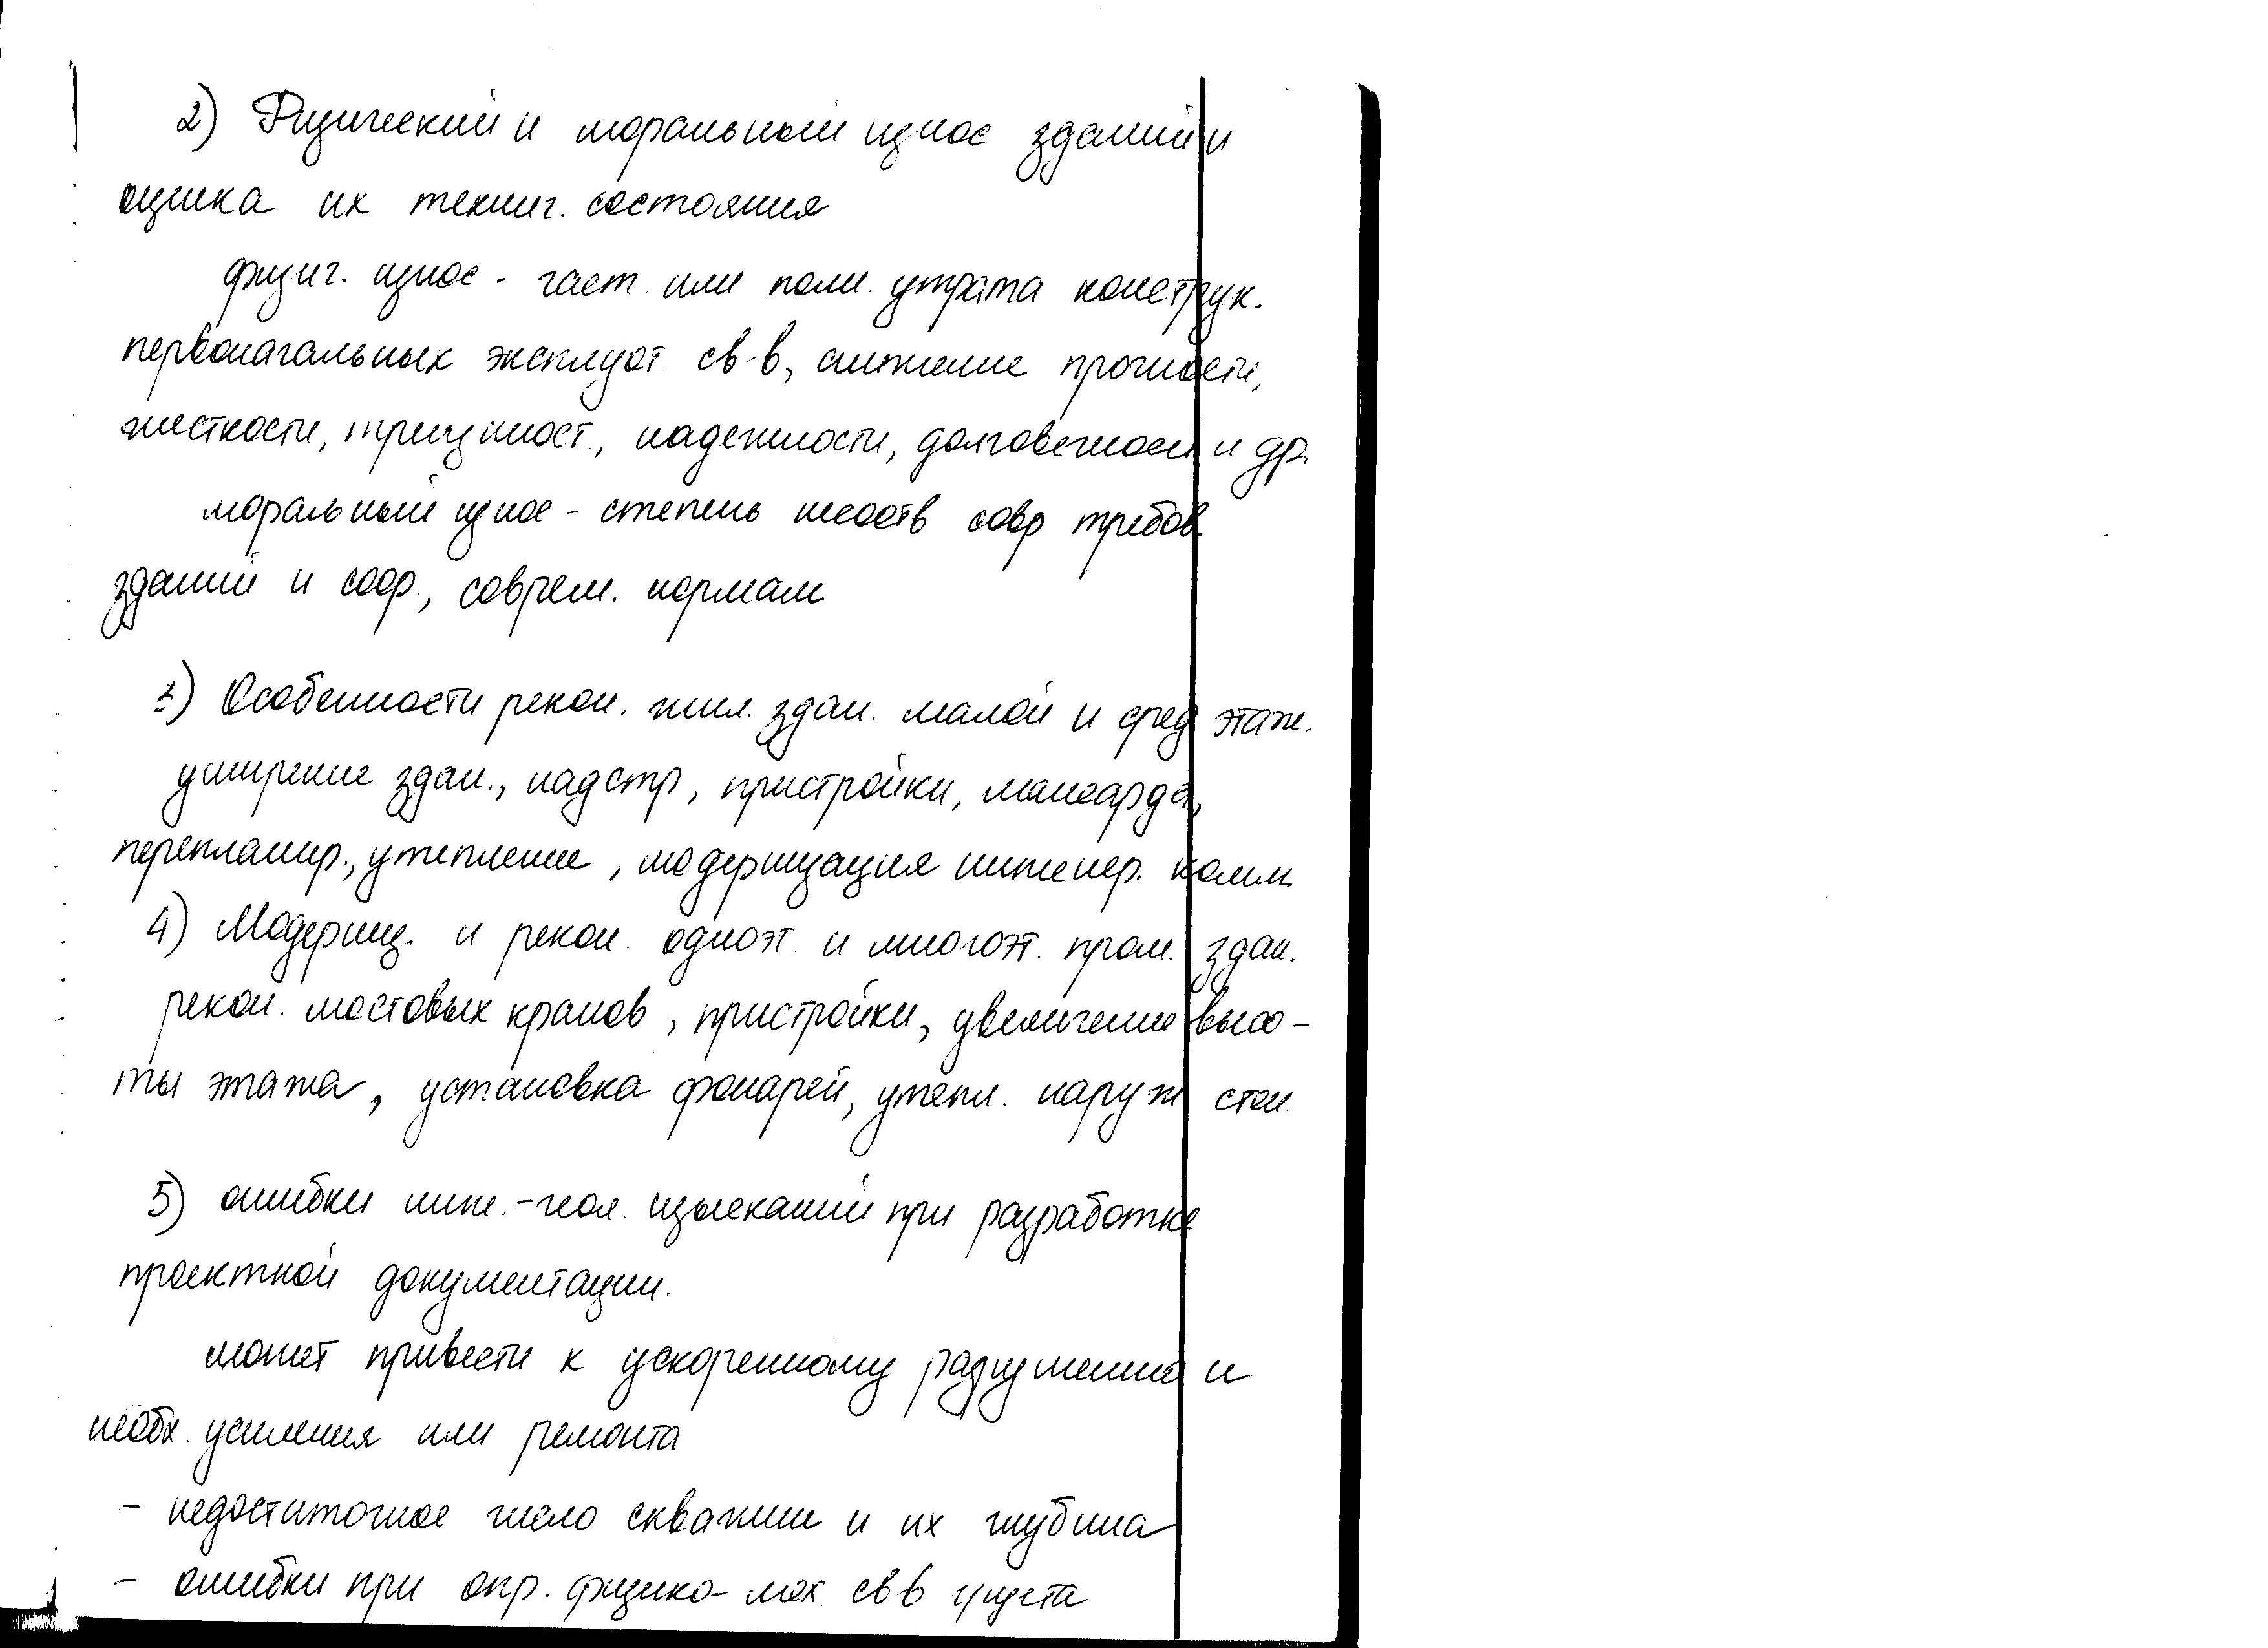 2) Физический и моральный износ зданий и
оценка их технич. состояния
физич. износ - част. или полн. утрата конструк.
первоначальных эксплуат. св-в, снижение прочности,
жесткости, трещиност., надежности, долговечности и др.
моральный износ - степень несоотв совр требов
зданий и соор, соврем. нормам
3) Особенности рекон. жил. здан. малой и сред этаж.
уширение здан., надстр, пристройки, мансарда,
перепланир., утепление, модернизация инженер. комм.
4) Модерниз. и рекон. одноэт. и многоэт. пром. здан.
рекон. мостовых кранов, пристройки, увеличение высо-
ты этажа, установка фонарей, утепл. наруж стен.
5) ошибки инж.-геол. изысканий при разработке
проектной документации.
может привести к ускоренному разрушению и
необх. усиления или ремонта
- недостаточное число скважин и их глубина
- ошибки при опр. физико-мех. св в грунта